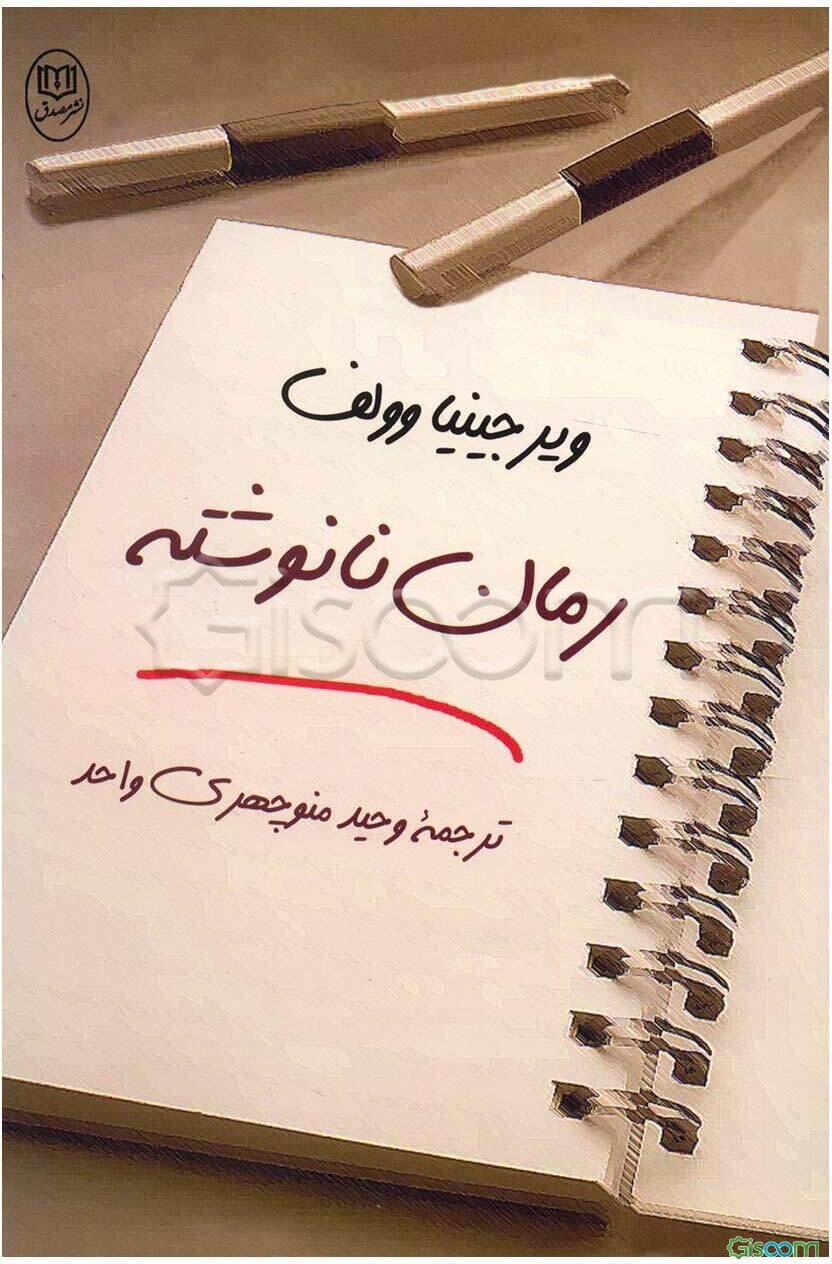 نشر مصدق
ویرجینیا وولف
رمان نانوشته
Giscom
ترجمهٔ وحید منوچهری واحد
Giscom